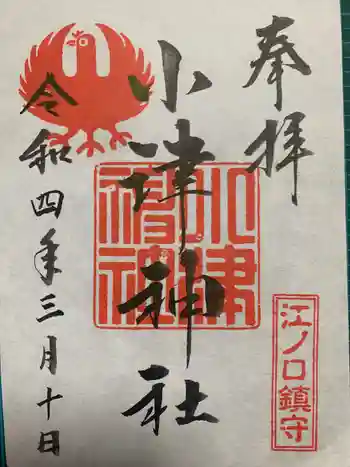 奉拝
江ノ口鎮守
小津神社
小津神社
令和四年三月十日